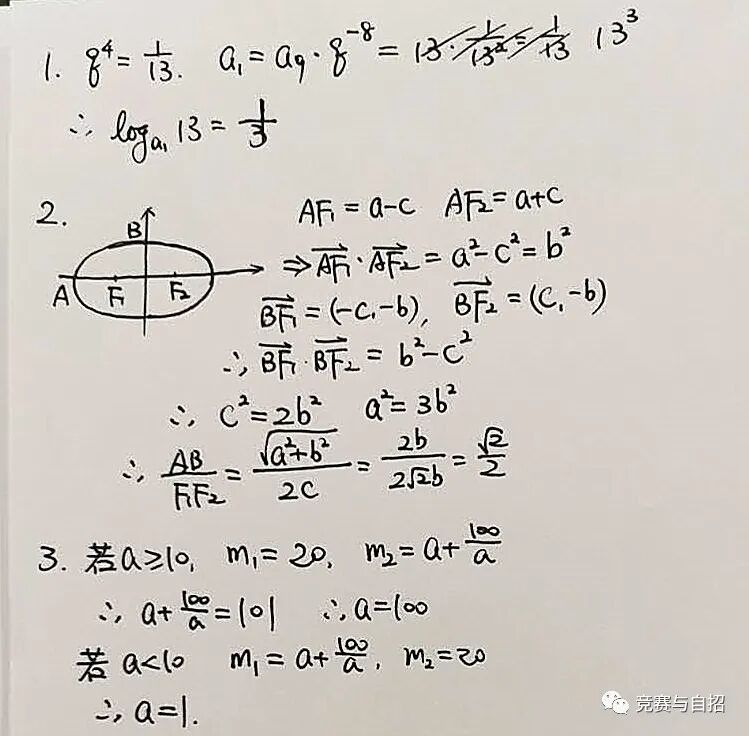 1. q⁴ = 1/13. a₁ = a₉·q⁻⁸ = 13·1/13² = 1/13 13³
∴ log_{a₁} 13 = 1/3
2. AF₁ = a-c AF₂ = a+c
B
A F₁ F₂
⇒ \overrightarrow{AF₁}·\overrightarrow{AF₂} = a²-c² = b²
\overrightarrow{BF₁} = (-c,-b), \overrightarrow{BF₂} = (c,-b)
∴ \overrightarrow{BF₁}·\overrightarrow{BF₂} = b²-c²
∴ c² = 2b² a² = 3b²
∴ AB/F₁F₂ = √(a²+b²)/2c = 2b/2√2b = √2/2
3. 若a≥10, m₁ = 20, m₂ = a+100/a
∴ a+100/a = 101 ∴ a=100
若a<10 m₁ = a+100/a, m₂ = 20
∴ a=1.
竞赛与自招